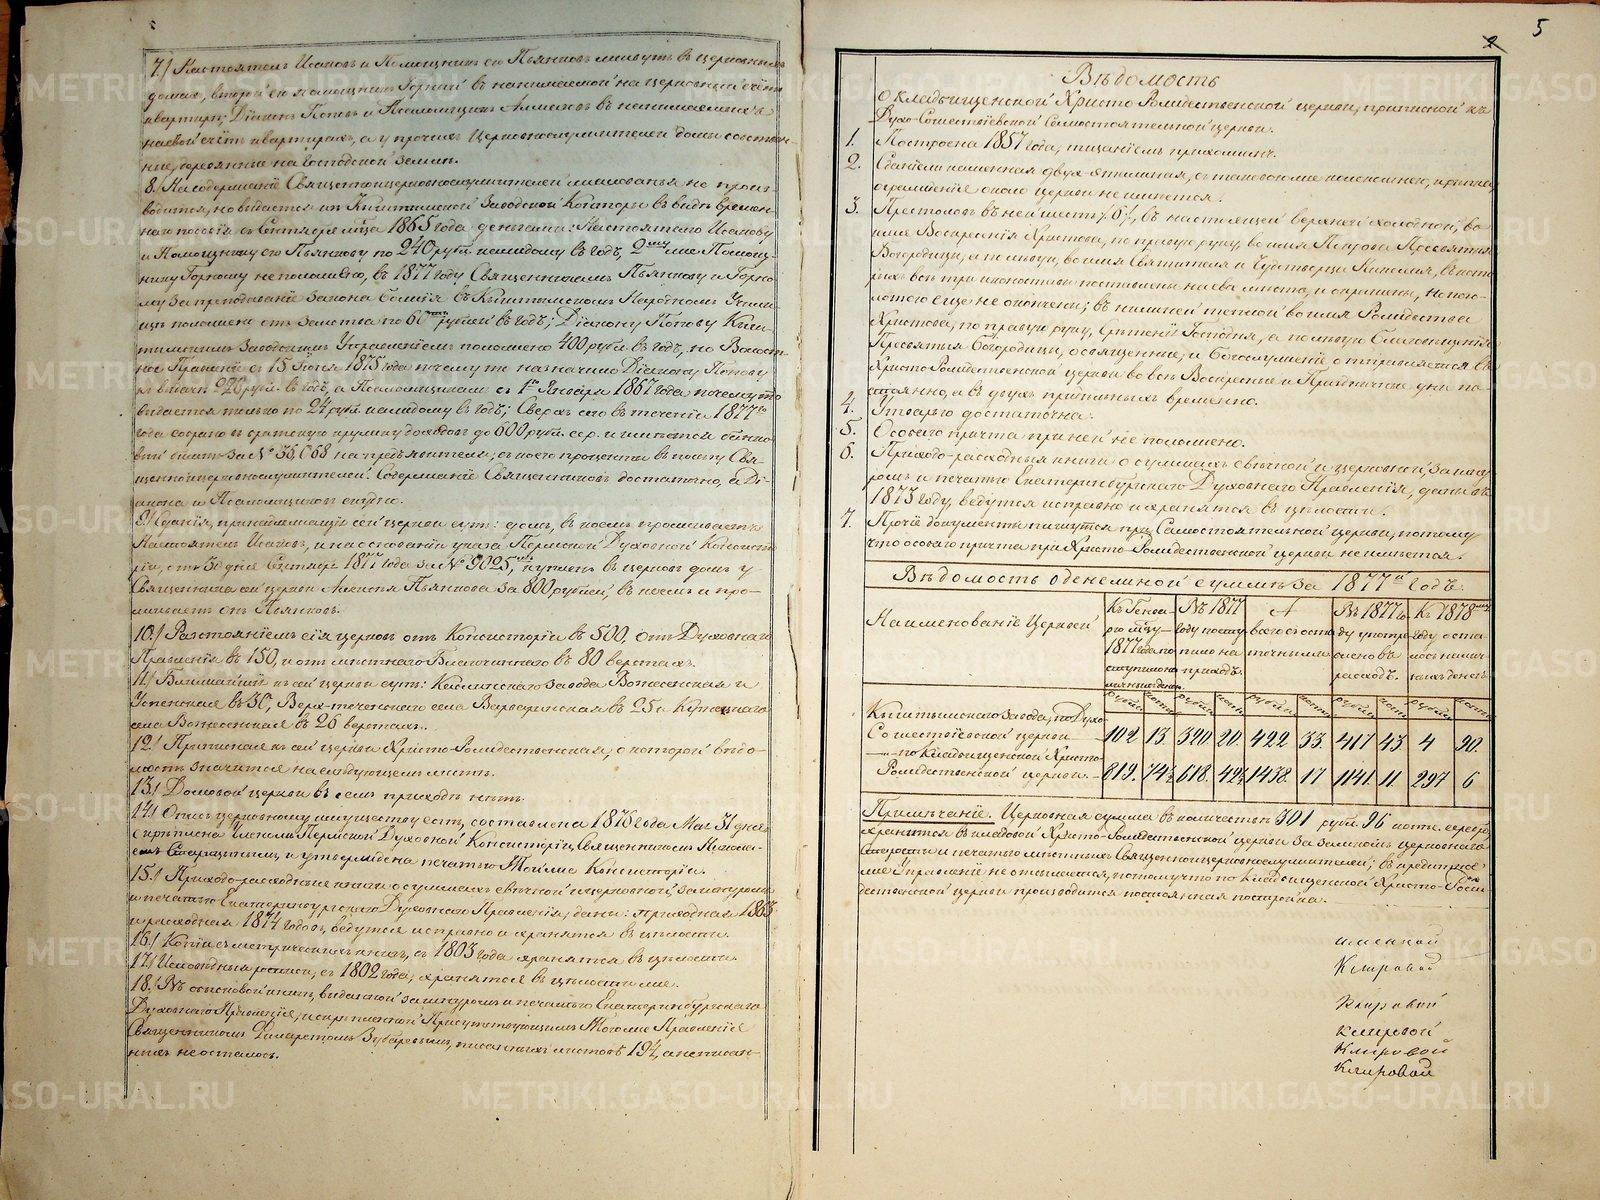 7.) Настоятель Исаковъ и Помощникъ его Пьянковъ живутъ въ церковныхъ
домахъ, второй его помощникъ Горный въ нанимаемой на церковный счётъ
квартирѣ; Діаконъ Поповъ и Псаломщикъ въ
счётъ квартирахъ, а у прочихъ Церковнослужителей домы собствен-
ные, деревянные на Господской землѣ.
8.) На содержаніе Священноцерковнослужителей жалованья не произ-
водится, но выдается изъ Кыштымской Заводской Конторы въ видѣ времен-
наго пособія съ Сентября м-ца 1865 года деньгами: Настоятелю Исакову
и Помощнику его Пьянкову по 240 руб. каждому въ годъ, 2му же Помощ-
нику Горному не положено, въ 1877 году Священникамъ Пьянкову и Горно-
му за преподаваніе закона Божія въ Кыштымскомъ Народномъ Учили-
щѣ положено отъ Земства по 60ти рублей въ годъ; Діакону Попову Кыш-
тымскимъ Заводскимъ Управленіемъ положено 400 руб. въ годъ, но
съ 15 1875 года почему то назначило Діакону Попову
къ выдачѣ 220 руб. въ годъ, а Псаломщикамъ съ 1го Января 1867 года почему то
выдается только по 24 руб. каждому въ годъ; Сверхъ сего въ теченіи 1877го
года собрано въ братскую кружку доходовъ до 600 руб. сер. и имѣется банко-
вый билетъ за № 36,068 на предъявителя, съ коего проценты въ пользу Свя-
щенноцерковнослужителей. Содержаніе Священниковъ достаточно, а Ді-
акона и Псаломщиковъ скудно.
9.) Зданія, принадлежащія сей церкви суть: домъ, въ коемъ проживаетъ
Настоятель Исаковъ, и на основаніи указа Пермской Духовной Консисто-
ріи, отъ 30 дня Сентября 1877 года за № 9025, купленъ въ церковь домъ у
Священника сей церкви Алексія Пьянкова за 800 рублей, въ коемъ и про-
живаетъ онъ Пьянковъ.
10.) Разстояніемъ сія церковь отъ Консисторіи въ 500, отъ Духовнаго
Правленія въ 150, и отъ мѣстнаго Благочиннаго въ 80 верстахъ.
11.) Ближайшія къ сей церкви суть: Каслинскаго завода Вознесенская и
Успенская въ 30, Верх-теченскаго села Варваринская въ 25 и
села Вознесенская въ 26 верстахъ.
12.) Приписная къ сей церкви Христо-Рождественская, о которой вѣдо-
мость значится на слѣдующемъ листѣ.
13.) Домовой церкви въ семъ приходѣ нѣтъ.
14.) Опись церковному имуществу есть, составлена 1876 года Мая 31 дня
скрѣплена Членомъ Пермской Духовной Консисторіи, Священникомъ
и утверждена печатью Тойже Консисторіи.
15.) Приходо-расходныя книги о суммахъ свѣчной и церковной, за шнуромъ
и печатью Екатеринбургскаго Духовнаго Правленія, даны: приходная 1863
и расходная 1874 годовъ, ведутся исправно и хранятся въ цѣлости.
16.) Копіи съ метрическихъ книгъ, съ 1803 года хранятся въ цѣлости.
17.) Исповѣдныя росписи, съ 1802 года, хранятся въ цѣлости же.
18.) Въ обысковой книгѣ, выданной за шнуромъ и печатью Екатеринбургскаго
Духовнаго Правленія, и скрѣпленной Присутствующимъ Тогоже Правленія
Священникомъ Зубаревымъ, писанныхъ листовъ 194, а неписан-
ныхъ не осталось.
5
2
Вѣдомость
О Кладбищенской Христо Рождественской церкви, приписной къ
Духо-Сошествіевской Самостоятельной церкви.
1. Построена 1857 года, тщаніемъ прихожанъ.
2. Зданіемъ каменная двух-этажная, съ таковою же колокольнею, крѣпка,
ограждение около церкви не имѣется.
3. Престоловъ въ ней шесть /6/, въ настоящей верхней холодной, во
имя Воскресенія Христова, по правую руку, во имя Покрова Пресвятыя
Богородицы, а по лѣвую, во имя Святителя и Чудотворца Николая, въ кото-
рыхъ всѣ три иконостасы поставлены на свои мѣста, и окрашены, но поз-
лотою еще не окончены; въ нижней теплой во имя Рождества
Христова, по правую руку, Срѣтенія Господня, а по лѣвую Благовѣщенія
Пресвятыя Богородицы, освященные, и богослуженіе отправляется въ
Христо Рождественской церкви во всѣ Воскресные и Праздничные дни по-
стоянно, а въ двухъ придѣльныхъ временно.
4. Утварью достаточна.
5. Особаго причта при ней не положено.
6. Приходо-расходныя книги о суммахъ свѣчной и церковной, за шну-
ромъ и печатью Екатеринбургскаго Духовнаго Правленія, даны въ
1873 году, ведутся исправно и хранятся въ цѣлости.
7. Прочіе документы пишутся при Самостоятельной церкви, потому
что особаго причта при Христо-Рождественской церкви не имѣется.
Вѣдомость о денежной суммѣ за 1877й годъ.
Наименованіе Церквей
Къ Генва-
рю м-цу
1877 года по
наличныхъ денегъ.
Въ 1877
году посту-
пило на
приходъ.
А
всего съ оста-
точными
Въ 1877 го-
ду употре-
блено въ
расходъ.
Къ 1878му
году оста-
лось налич-
ныхъ денегъ
рубли копѣ. рубли копѣ. рубли копѣ. рубли копѣ. рубли копѣ.
Кыштымскаго завода, по Духо-
Сошествіевской церкви 102. 13. 320 20. 422 33. 417 43 4 90.
— по Кладбищенской Христо-
Рождественской церкви. 819. 74½ 618. 42½ 1438. 17 1141. 11. 297 6
Примѣчаніе. Церковная сумма въ количествѣ 301 рубл. 96 коп. серебр.
хранится въ кладовой Христо-Рождественской церкви за замкомъ церковнаго
Старосты и печатью мѣстныхъ Священноцерковнослужителей; въ кредитное
же Управленіе не отсылается, потому что по Кладбищенской Христо-Рож-
дественской церкви производится постоянная постройка.
именной
Клировой
Клировой
Клировой
Клировой
Клировой
METRIKI.GASO-URAL.RU